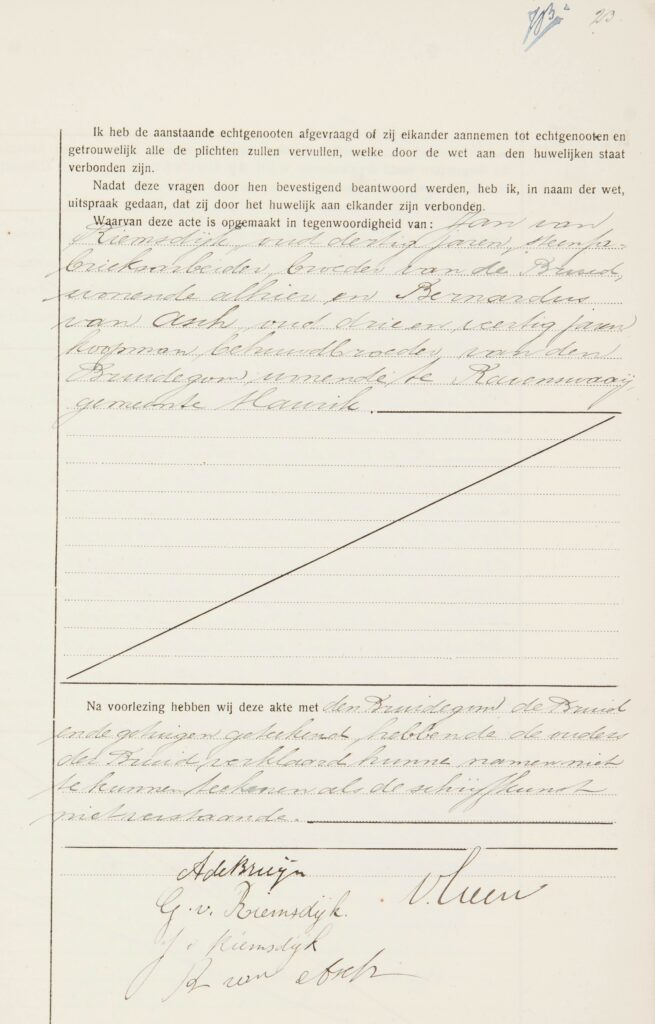 23.
Ik heb de aanstaande echtgenooten afgevraagd of zij elkander aannemen tot echtgenooten en
getrouwelijk alle de plichten zullen vervullen, welke door de wet aan den huwelijken staat
verbonden zijn.
Nadat deze vragen door hen bevestigend beantwoord werden, heb ik, in naam der wet,
uitspraak gedaan, dat zij door het huwelijk aan elkander zijn verbonden.
Waarvan deze acte is opgemaakt in tegenwoordigheid van: Jan van
Riemsdijk, oud dertig jaren, steenfa-
briekarbeider, broeder van de Bruid,
wonende alhier en Bernardus
van Asch, oud drie en veertig jaren
koopman, behuwdbroeder van den
Bruidegom, wonende te Ravenswaaij
gemeente Maurik.
Na voorlezing hebben wij deze akte met den Bruidegom, de Bruid
en de getuigen geteekend, hebbende de ouders
der Bruid verklaard hunne namen niet
te kunnen teekenen als de schrijfkunst
niet verstaande.
A de Bruijn
G. v. Riemsdijk.
J v Riemsdijk
B van Asch